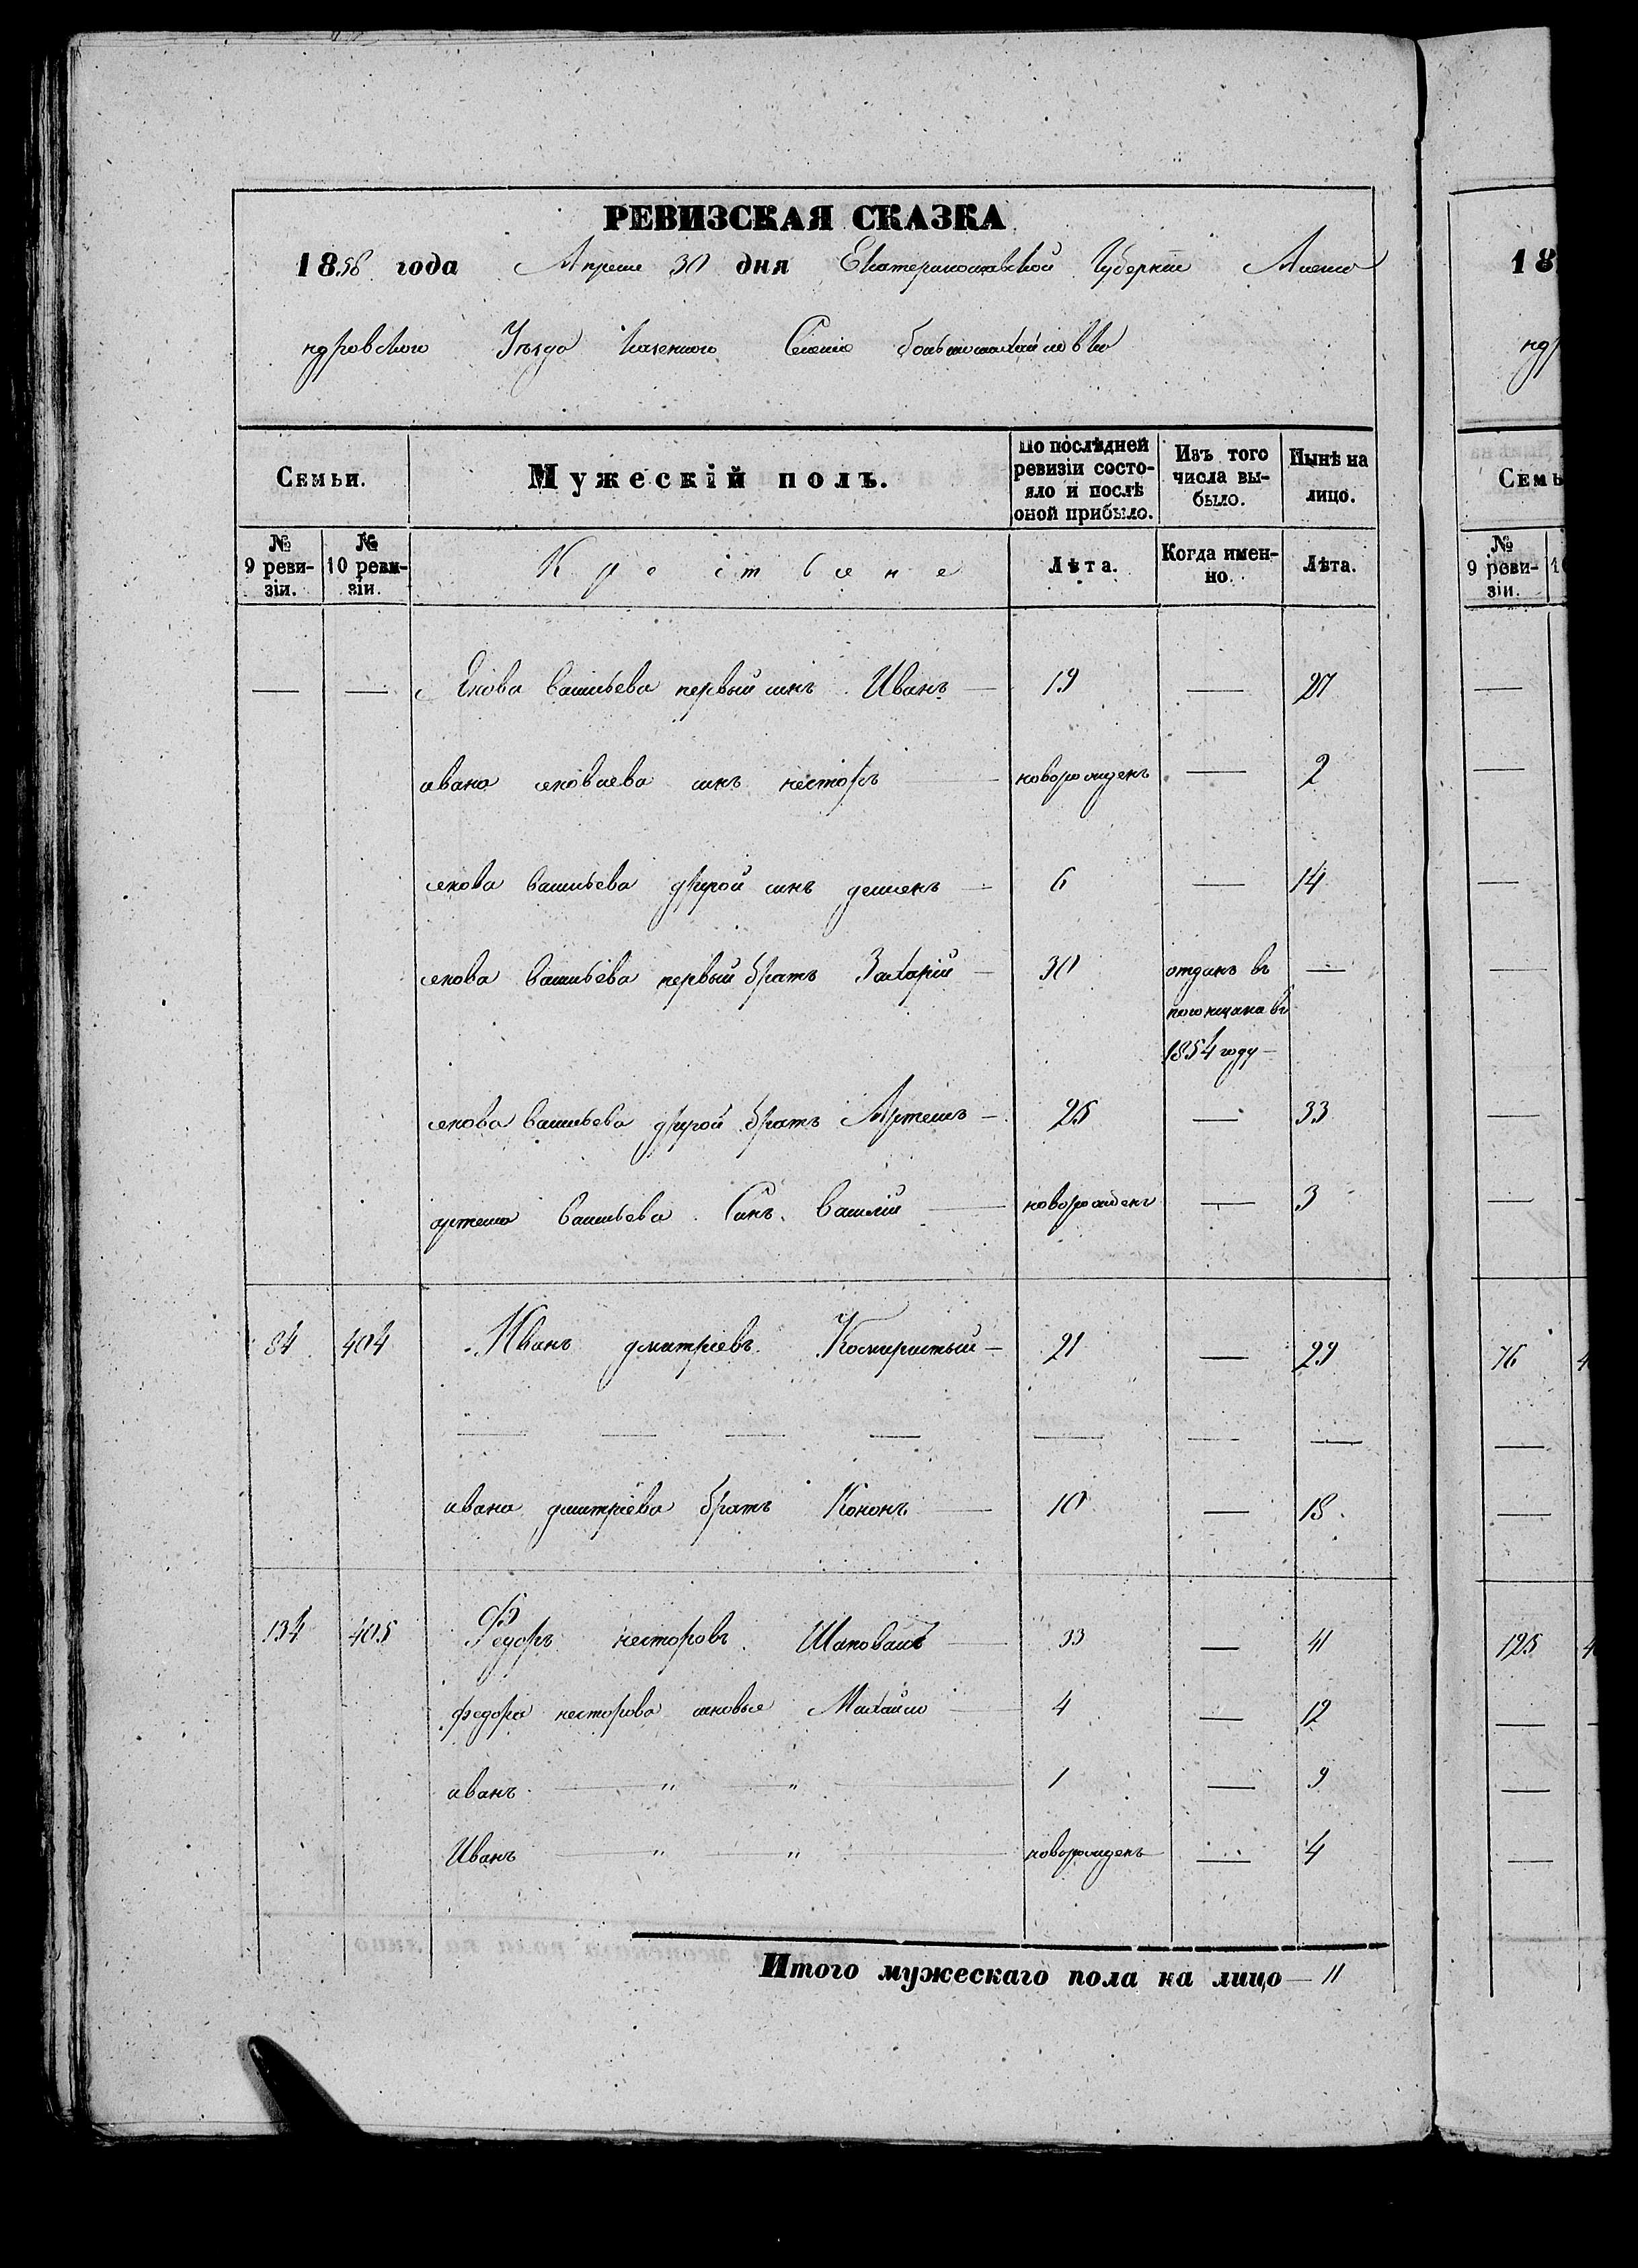 РЕВИЗСКАЯ СКАЗКА
1858 года Апреля 30 дня Екатеринославской Губернии Алекса
ндровского Уезда казенного Селения большемихайловки
Семьи. Мужескій полъ. По послѣдней ревизіи состояло и послѣ оной прибыло. Изъ того числа выбыло. Нынѣ на лицо.
№ 9 ревизіи. № 10 ревизіи. Крестьяне Лѣта. Когда именно. Лѣта.
— — Якова васильева первый синъ Иванъ — 19 — 27
ивана яковлева синъ несторъ — новорожденъ — 2
якова васильева другой синъ демянъ — 6 — 14
якова васильева первый братъ Захарій — 30 отданъ въ —
1854 году —
якова васильева другой братъ Артемъ — 25 — 33
артема васильева Синъ Василій — новорожденъ — 3
84 404 Иванъ дмитріевъ — 21 — 29
— — — — — — —
ивана дмитріева братъ Кононъ — 10 — 18
134 405 Федоръ несторовъ Шаповалъ — 33 — 41
федора несторова синовья Михайло — 4 — 12
иванъ — " — " — 1 — 9
Иванъ — " — " — новорожденъ — 4
Итого мужескаго пола на лицо — 11
18
нд
Семь
№ 9 ревизіи.
76
125